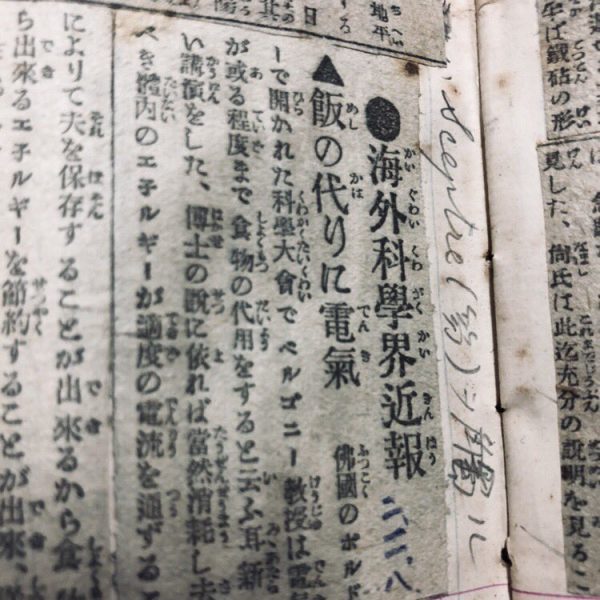 鐡砧の形
見した、尙氏は此迄充分の説明を見るこ
Sceptre(笏)=
●海外科學界近報
二、二、八
▲飯の代りに電氣
佛國のボルド
ーで開かれた科學大會でベルゴニー教授は電
が或る程度まで食物の代用をすると云ふ耳新
い講演をした、博士の説に依れば當然消耗し去
べき體内のエ子ルギーが適度の電流を通ずるこ
によりて夫を保存することが出來るから食
ら出來るエ子ルギーを節約することが出來、